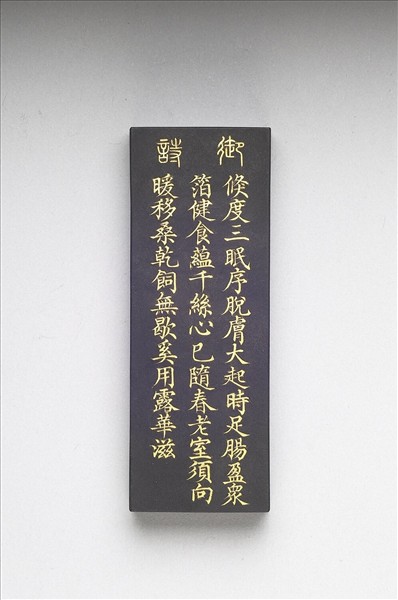 御
詩
倏度三眠序脫膚大起時足腸盈眾
箔健食蘊千絲心已隨春老室須向
暖移桑乾飼無歇奚用露華滋